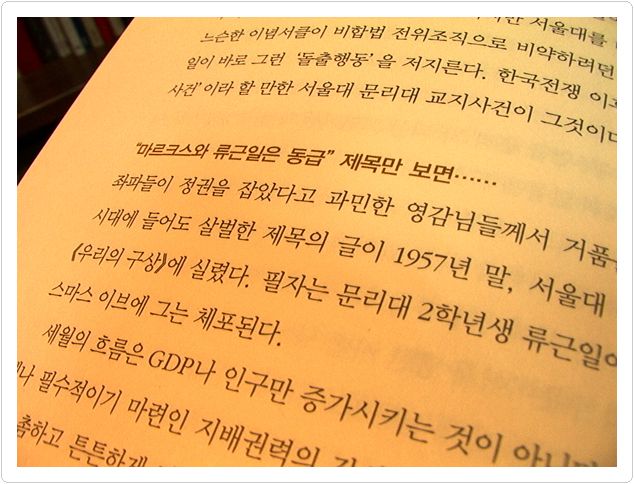 서울대를
느슨한 이념서클이 비합법 전위조직으로 비약하려던
일이 바로 그런 ‘돌출행동’을 저지른다. 한국전쟁 이후
사건’이라 할 만한 서울대 문리대 교지사건이 그것이다
“마르크스와 류근일은 동급” 제목만 보면……
좌파들이 정권을 잡았다고 과민한 영감님들께서 거품을
시대에 들어도 살벌한 제목의 글이 1957년 말, 서울대
《우리의 구상》에 실렸다. 필자는 문리대 2학년생 류근일이
스마스 이브에 그는 체포된다.
세월의 흐름은 GDP나 인구만 증가시키는 것이 아니
필수적이기 마련인 지배권력의
촘하고 튼튼하게